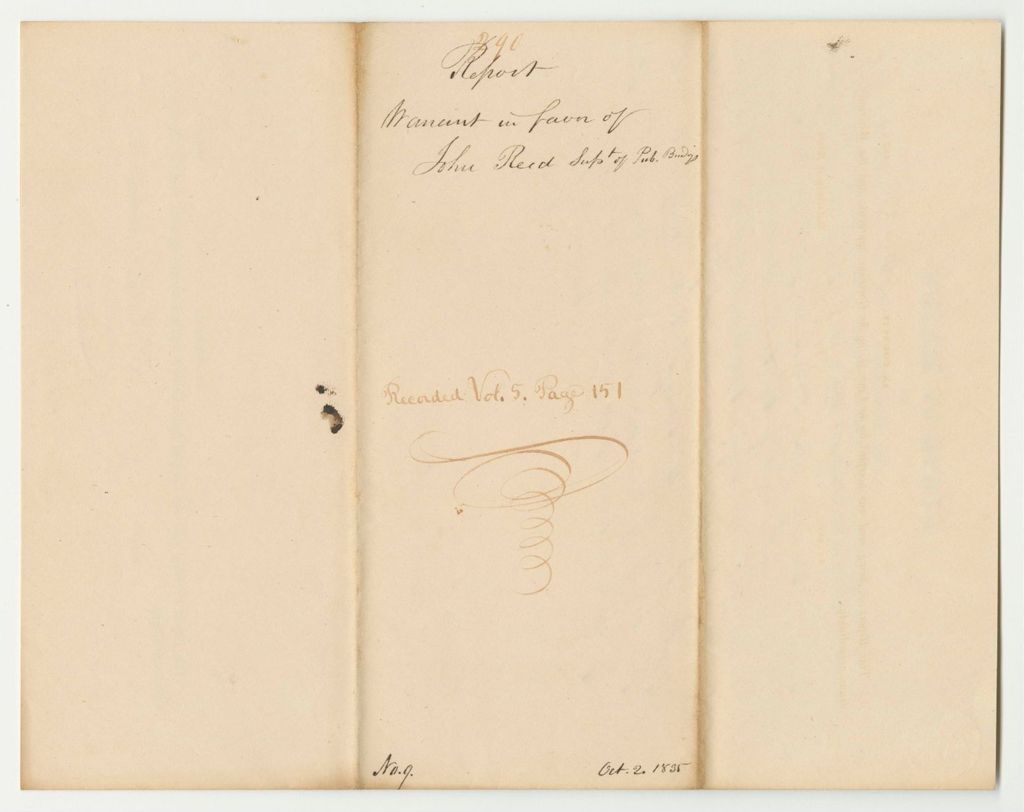 290
Report
Warrant in favor of
John Reed Supt of Pub. Buldgs
Recorded Vol. 5. Page 151
No. 9.
Oct. 2. 1835